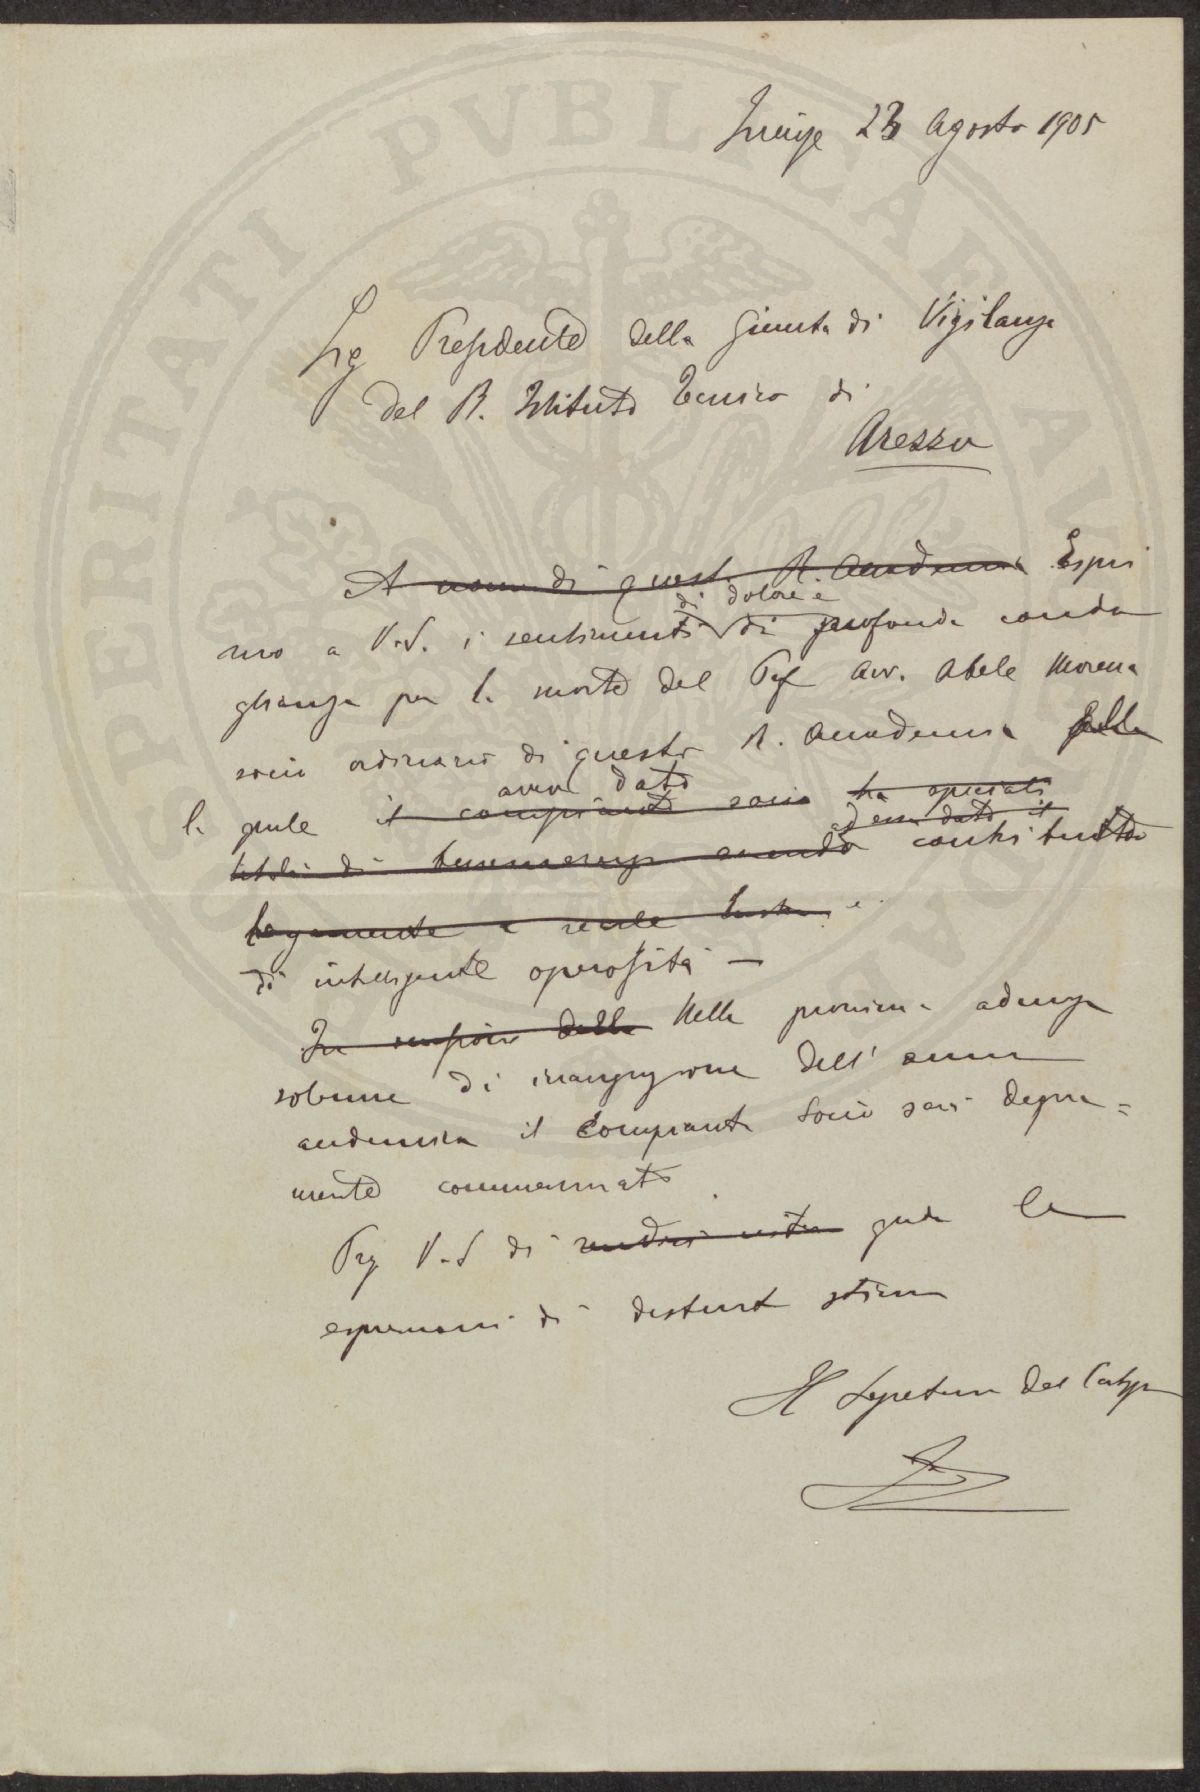 Firenze 23 Agosto 1905
Sig Presidente della Giunta di Vigilanza
del R. Istituto Tecnico di
Arezzo
A nome di questa R. Accademia Espri
mo a V.S. i sentimenti di dolore e di profonda condo
glianza per la morte del Prof Avv. Abele Morena
socio ordinario di questa R. Accademia alla
la quale il compianto socio ha speciali
aveva dato
titoli di benemerenza avendo contributo
ed era dato il
di intelligente operosità —
della Nella prossima adunanza
solenne di inaugurazione dell' anno
accademico il Compianto Socio sarà degna=
mente commemorato
Prego V.S di gradire le
espressioni di distinta stima
Il Segretario del